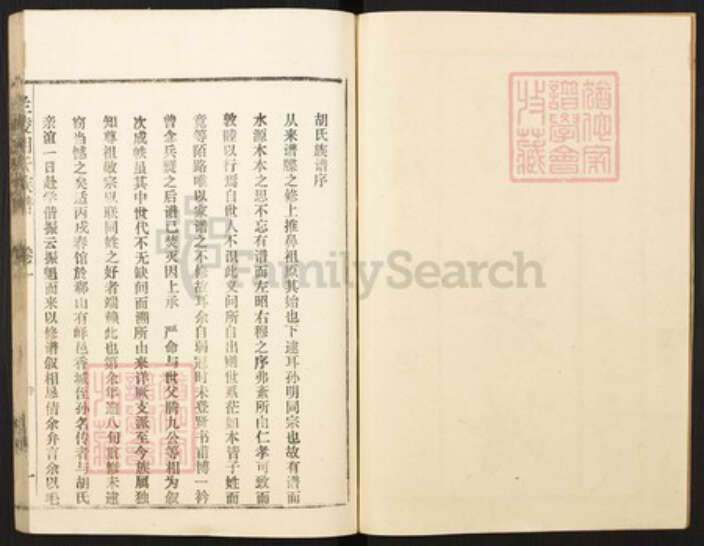 胡氏族谱序
从来谱牒之修上推鼻祖原其始也下逮耳孙明同宗也故有谱而
水源木本之思不忘有谱而左昭右穆之序弗紊所由仁孝可致而
敦睦以行焉自世人不识此义问所自出则世系茫如本皆子姓而
竟等陌路唯以家谱之不修故耳余自弱冠时未登贤书甫博一衿
曾念兵燹之后谱已焚灭因上承 严命与世父腾九公等相为叙
次成帙虽其中世代不无缺问而溯所由来详厥支派至今族属独
知尊祖敬宗以联同姓之好者端赖此也第余年逾八旬 未逮
窃当憾之矣适丙戌春馆於郗山有峄邑香城侄孙名传者与胡氏
亲谊一日赴学偕振云振魁而来以修谱叙相恳倩余弁言余以耄
卷一
一
FamilySearch
谱学会
藏